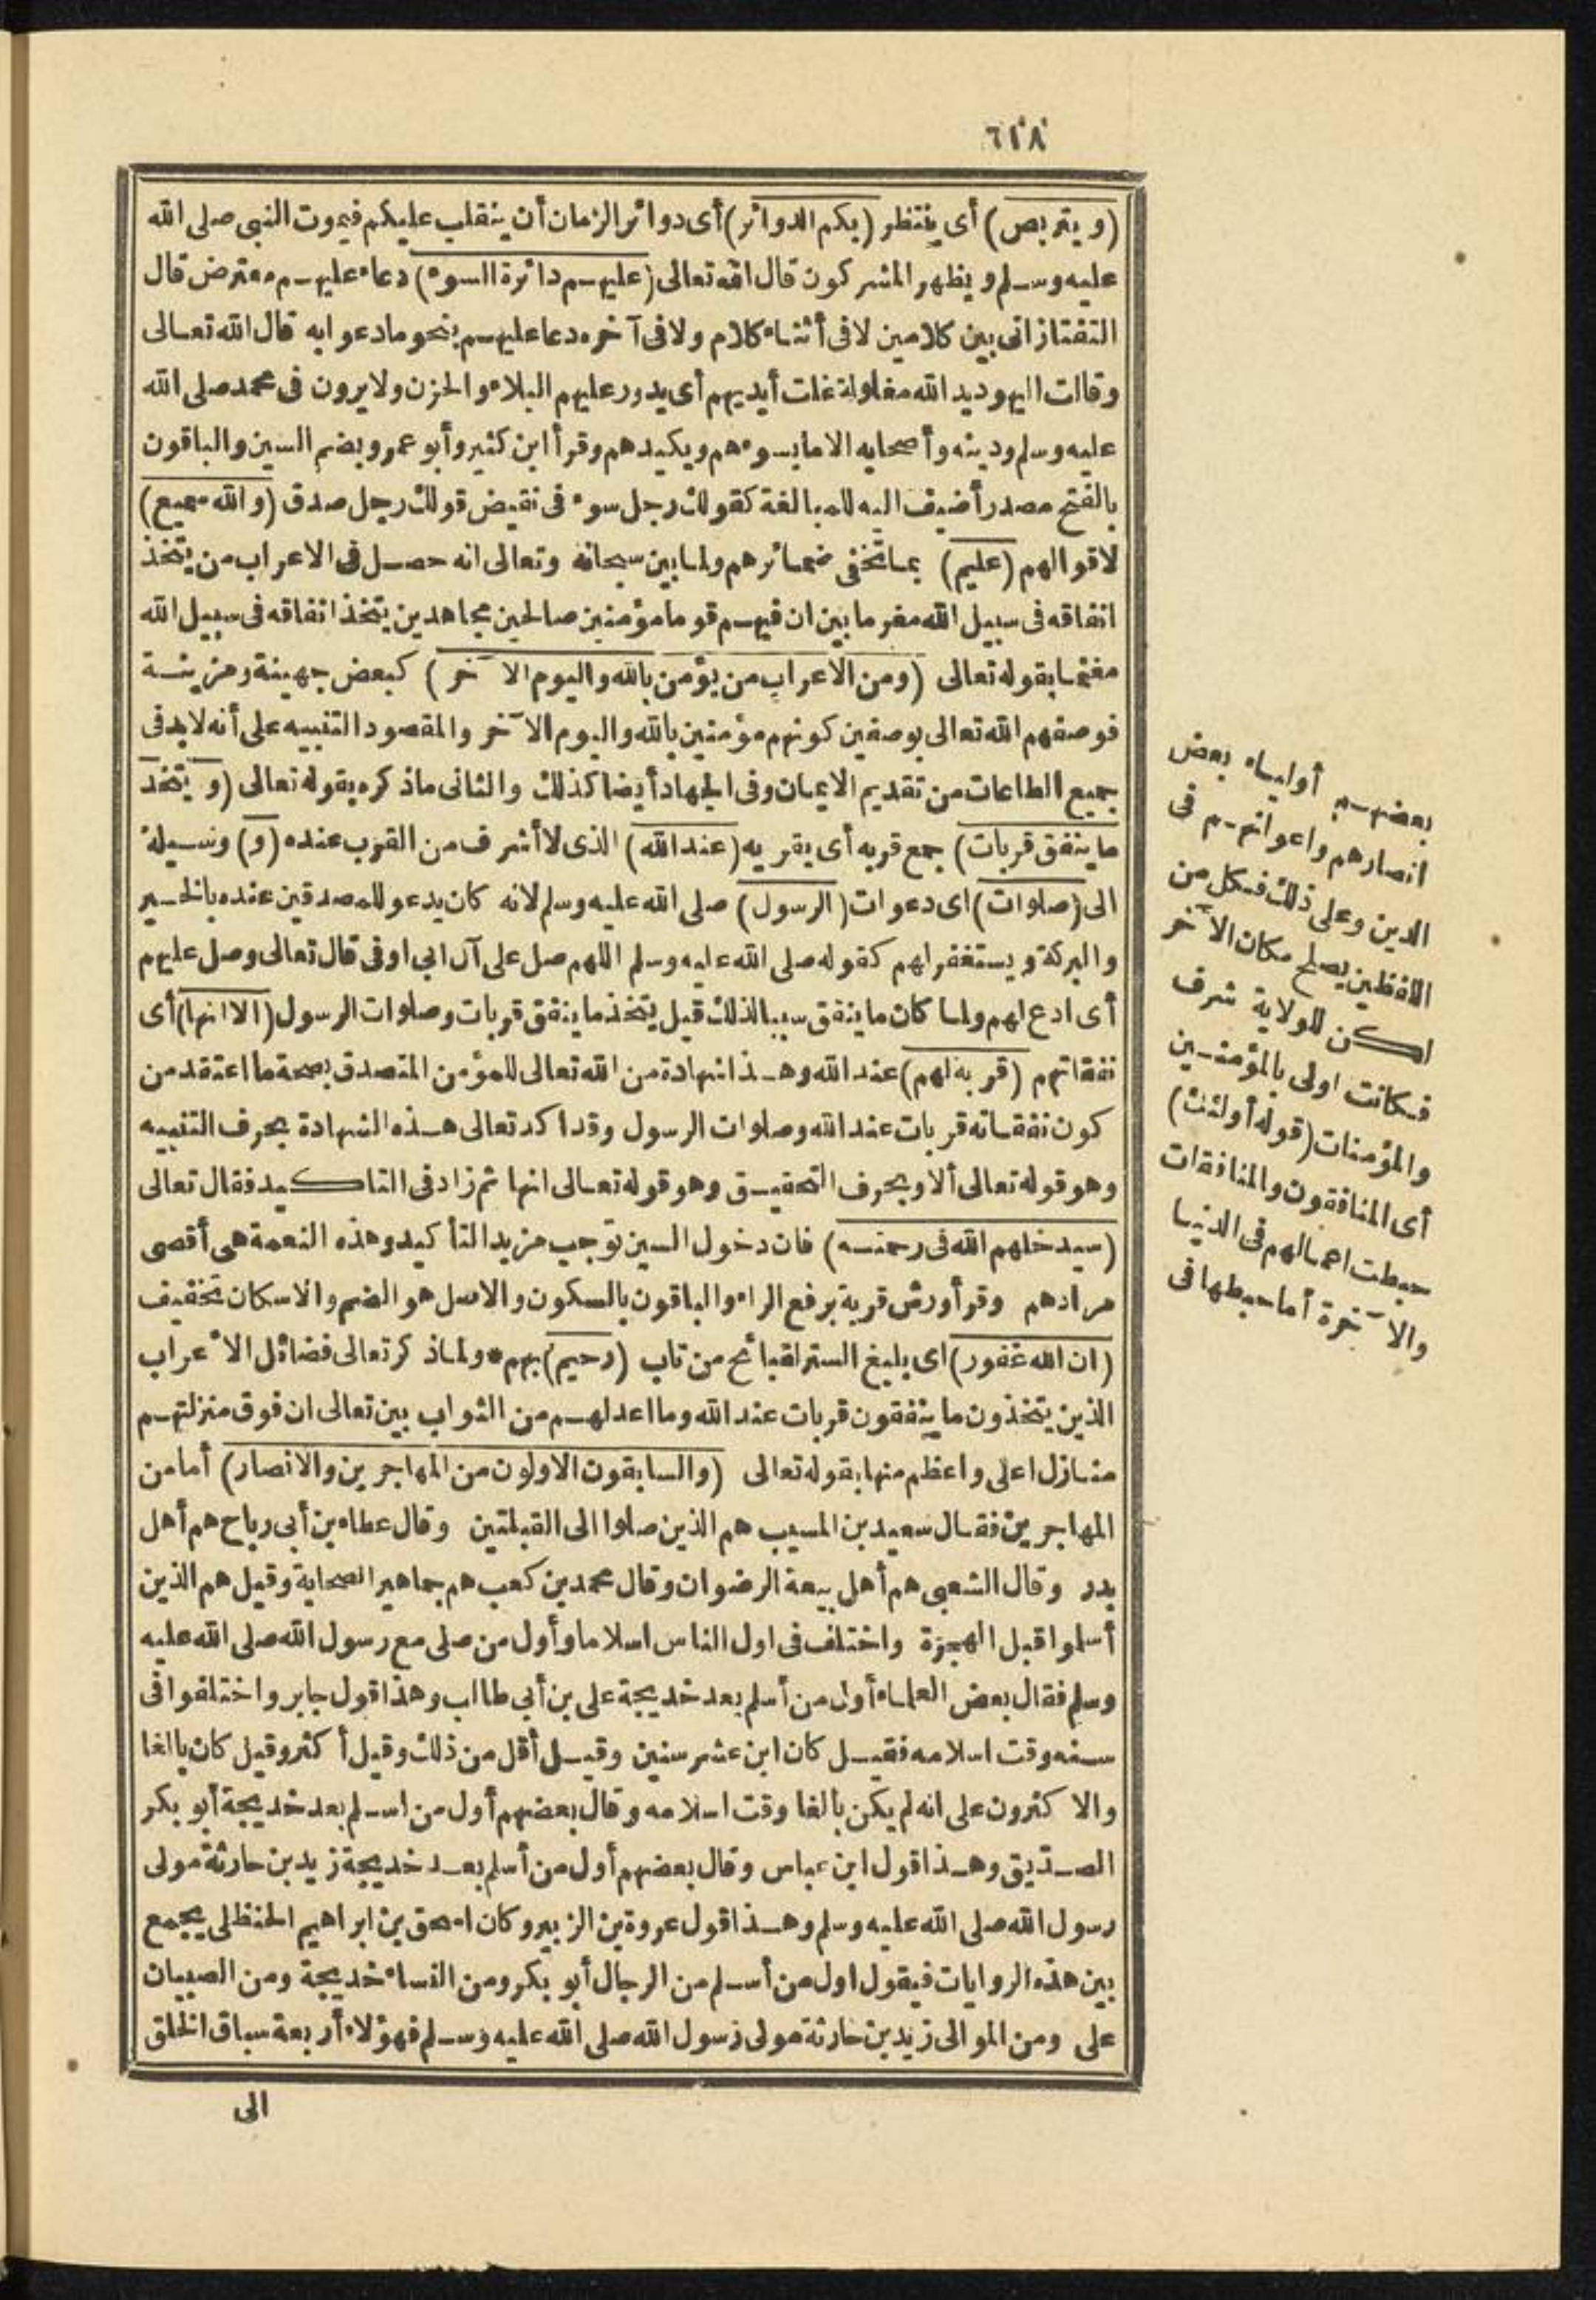 ٦١٨
(ويتربص) أى ينتظر (بكم الدوائر) أى دوائر الزمان أن ينقلب عليكم فيموت النبى صلى الله
عليه وسلم ويظهر المشركون قال الله تعالى (عليهم دائرة السوء) دعاء عليهم معترض قال
التفتازانى بين كلامين لا فى أثناء كلام ولا فى آخره دعا عليهم بنحو مادعوا به قال الله تعالى
وقالت اليهود يد الله مغلولة غلت أيديهم أى يدور عليهم البلاء والحزن ولا يرون فى محمد صلى الله
عليه وسلم ودينه وأصحابه الا ما يسوءهم ويكيدهم وقرأ ابن كثير وأبو عمرو بضم السين والباقون
بالفتح مصدر أضيف اليه للمبالغة كقولك رجل سوء فى نقيض قولك رجل صدق (والله سميع)
لاقوالهم (عليم) بما تخفى ضمائرهم ولما بين سبحانه وتعالى انه حصل فى الاعراب من يتخذ
انفاقه فى سبيل الله مغرما بين ان فيهم قوما مؤمنين صالحين مجاهدين يتخذ انفاقه فى سبيل الله
مغنما بقوله تعالى (ومن الاعراب من يؤمن بالله واليوم الآخر) كبعض جهينة ومزينة
فوصفهم الله تعالى بوصفين كونهم مؤمنين بالله واليوم الآخر والمقصود التنبيه على أنه لابد فى
جميع الطاعات من تقديم الايمان وفى الجهاد أيضا كذلك والثانى ماذكره بقوله تعالى (ويتخذ
ما ينفق قربات) جمع قربه أى يقر به (عند الله) الذى لا أشرف من القرب عنده (و) وسيلة
الى (صلوات) اى دعوات (الرسول) صلى الله عليه وسلم لانه كان يدعو للمصدقين عنده بالخير
والبركة ويستغفر لهم كقوله صلى الله عليه وسلم اللهم صل على آل ابى اوفى قال تعالى وصل عليهم
أى ادع لهم ولما كان ما ينفق سببا لذلك قيل يتخذ ما ينفق قربات وصلوات الرسول (الا انها) أى
نفقاتهم (قربة لهم) عند الله وهذا شهادة من الله تعالى للمؤمن المتصدق بصحة ما اعتقد من
كون نفقاته قربات عند الله وصلوات الرسول وقد اكد تعالى هذه الشهادة بحرف التنبيه
وهو قوله تعالى ألا وبحرف التحقيق وهو قوله تعالى انها ثم زاد فى التاكيد فقال تعالى
(سيدخلهم الله فى رحمته) فان دخول السين توجب مزيد التأكيد وهذه النعمة هى أقصى
مرادهم وقرأ ورش قربة برفع الراء والباقون بالسكون والاصل هو الضم والاسكان تخفيف
(ان الله غفور) اى بليغ الستر لقبائح من تاب (رحيم) بهم * ولما ذكر تعالى فضائل الأعراب
الذين يتخذون ما ينفقون قربات عند الله وما اعد لهم من الثواب بين تعالى ان فوق منزلتهم
منازل اعلى واعظم منها بقوله تعالى (والسابقون الاولون من المهاجرين والانصار) أما من
المهاجرين فقال سعيد بن المسيب هم الذين صلوا الى القبلتين وقال عطاء بن أبى رباح هم أهل
بدر وقال الشعبى هم أهل بيعة الرضوان وقال محمد بن كعب هم جماهير الصحابة وقيل هم الذين
أسلموا قبل الهجرة واختلف فى اول الناس اسلاما وأول من صلى مع رسول الله صلى الله عليه
وسلم فقال بعض العلماء أول من أسلم بعد خديجة على بن أبى طالب وهذا قول جابر واختلفوا فى
سنه وقت اسلامه فقيل كان ابن عشر سنين وقيل أقل من ذلك وقيل أكثر وقيل كان بالغا
والاكثرون على انه لم يكن بالغا وقت اسلامه وقال بعضهم أول من اسلم بعد خديجة أبو بكر
الصديق وهذا قول ابن عباس وقال بعضهم أول من أسلم بعد خديجة زيد بن حارثة مولى
رسول الله صلى الله عليه وسلم وهذا قول عروة بن الزبير وكان اسحق بن ابراهيم الحنظلى يجمع
بين هذه الروايات فيقول اول من أسلم من الرجال أبو بكر ومن النساء خديجة ومن الصبيان
على ومن الموالى زيد بن حارثة مولى رسول الله صلى الله عليه وسلم فهؤلاء أربعة سباق الخلق
الى
بعضهم أولياء بعض
انصارهم واعوانهم فى
الدين وعلى ذلك فكل من
اللفظين يصلح مكان الآخر
لكن للولاية شرف
فكانت اولى بالمؤمنين
والمؤمنات (قوله أولئك)
أى المنافقون والمنافقات
حبطت اعمالهم فى الدنيا
والآخرة أما حبطها فى